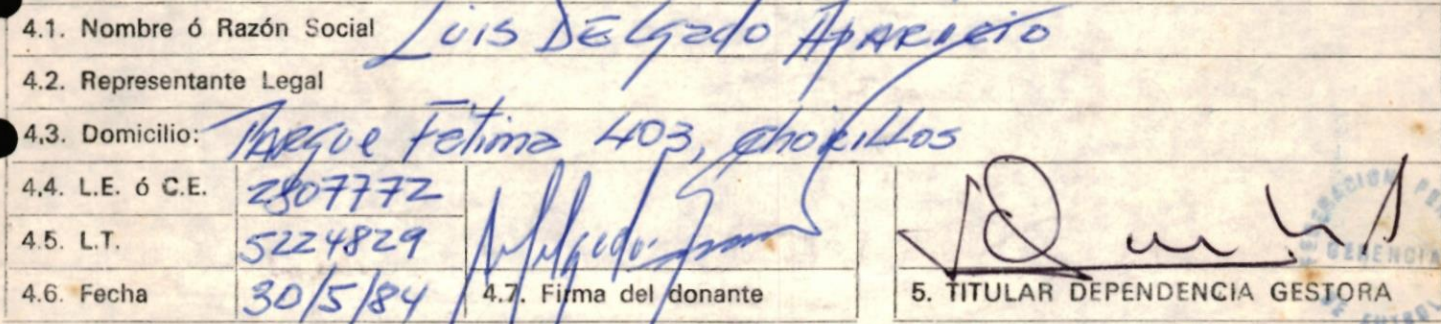 4.1. Nombre ó Razón Social Luis Delgado Aparicio
4.2. Representante Legal
4.3. Domicilio: Parque Fátima 403, Chorillos
4.4. L.E. ó C.E. 2807772
4.5. L.T. 5224829
4.6. Fecha 30/5/84
4.7. Firma del donante
5. TITULAR DEPENDENCIA GESTORA
GERENCIA
DE FUTBOL